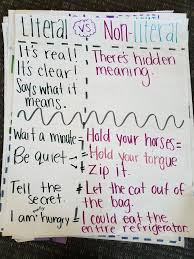 Literal vs Non-literal
It's real!
It's clear!
Says what it
means.
There's hidden
meaning.
Wait a minute- Hold your horses=
Be quiet- Hold your tongue
Zip it.
Tell the
secret.
Let the cat out of
the bag.
I am hungry
I could eat the
entire refrigerator.